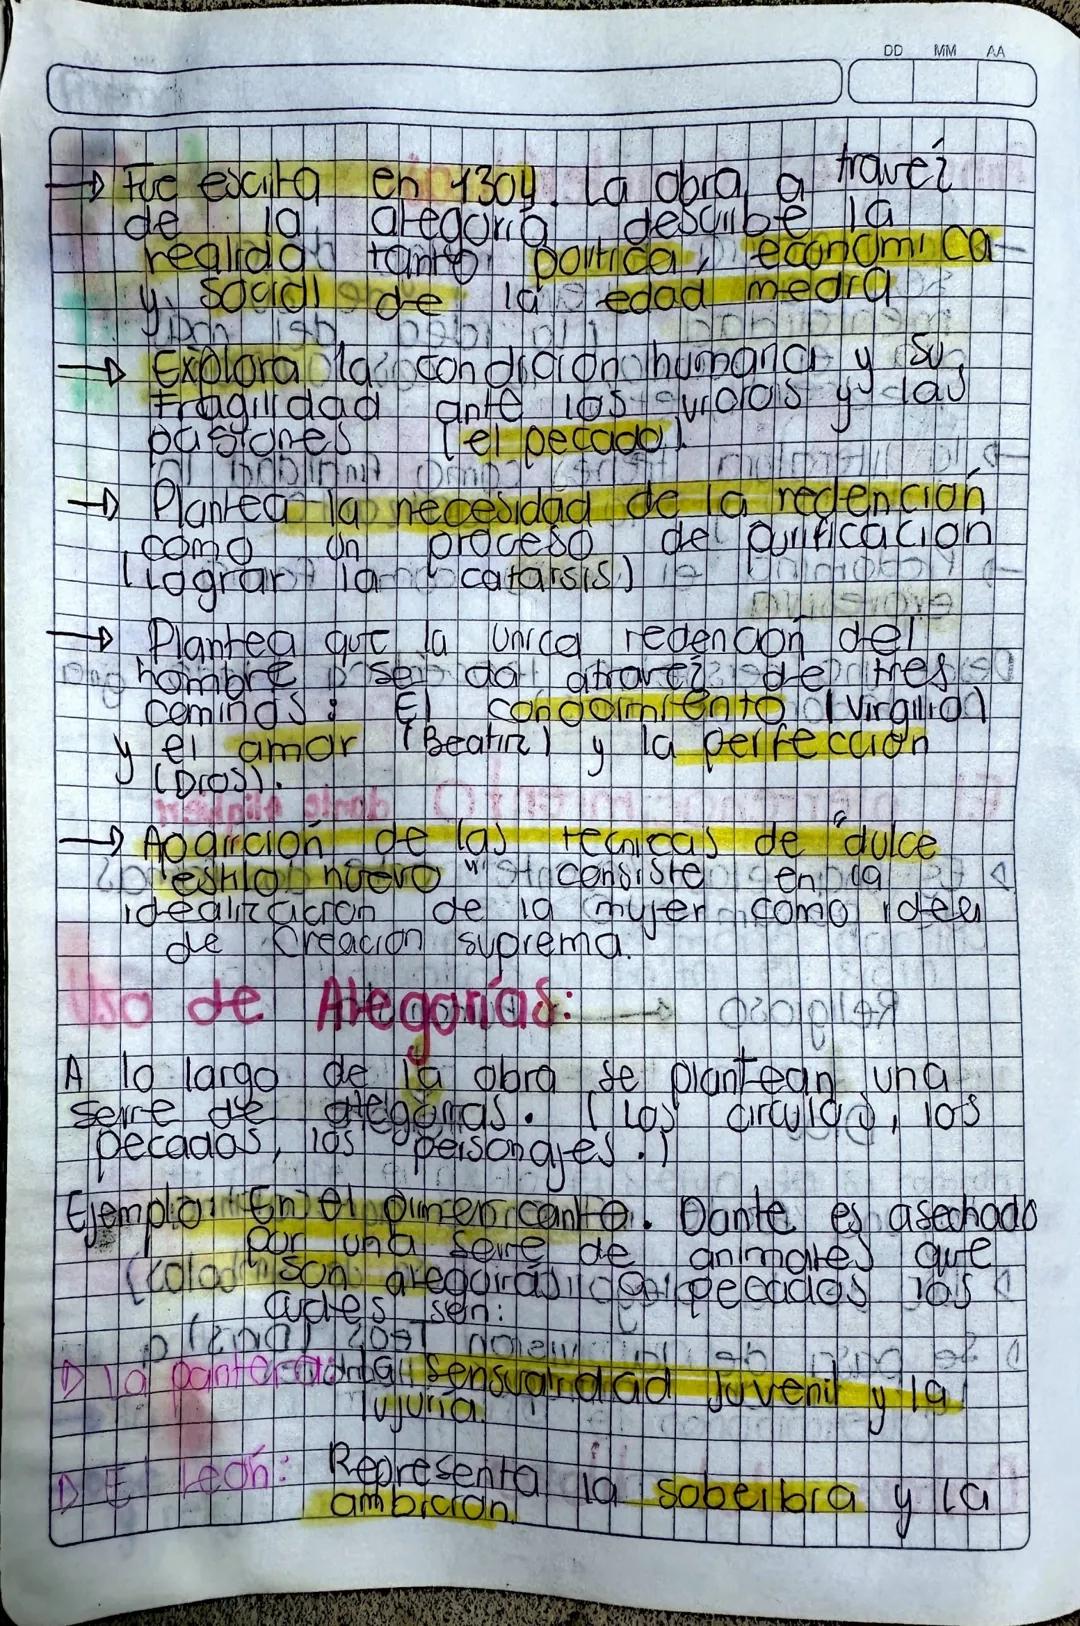 DD MM AA
→ Fue escrita en 1304. La obra a travez
de la alegoria describe la
realidad tanto politica, economica
y social de la edad media
→ Explora la condicion humana y su
fragilidad ante los vicios y las
pasiones (el pecado).
→ Plantea la necesidad de la redención
como un proceso de purificacion
(lograr la catarsis)
→ Plantea que la unica redencion del
hombre se da atravez de tres
caminos: El conocimiento (Virgilio)
y el amor (Beatriz) y la perfeccion
(Dios).
→ Aparición de las tecnicas de "dulce
estilo nuevo" consiste en la
idealizacion de la mujer como idea
de Creacion suprema.
Uso de Alegorías:
A lo largo de la obra se plantean una
serie de alegorias. (Los circulos, los
pecados, los personajes.)
Ejemplo: En el primer canto. Dante es asechado
por una serie de animales que
son alegorias pecados los
cuales son:
▷ La pantera: sensualidad juvenil y la
lujuria.
▷ El León: Representa la soberbia y la
ambición.